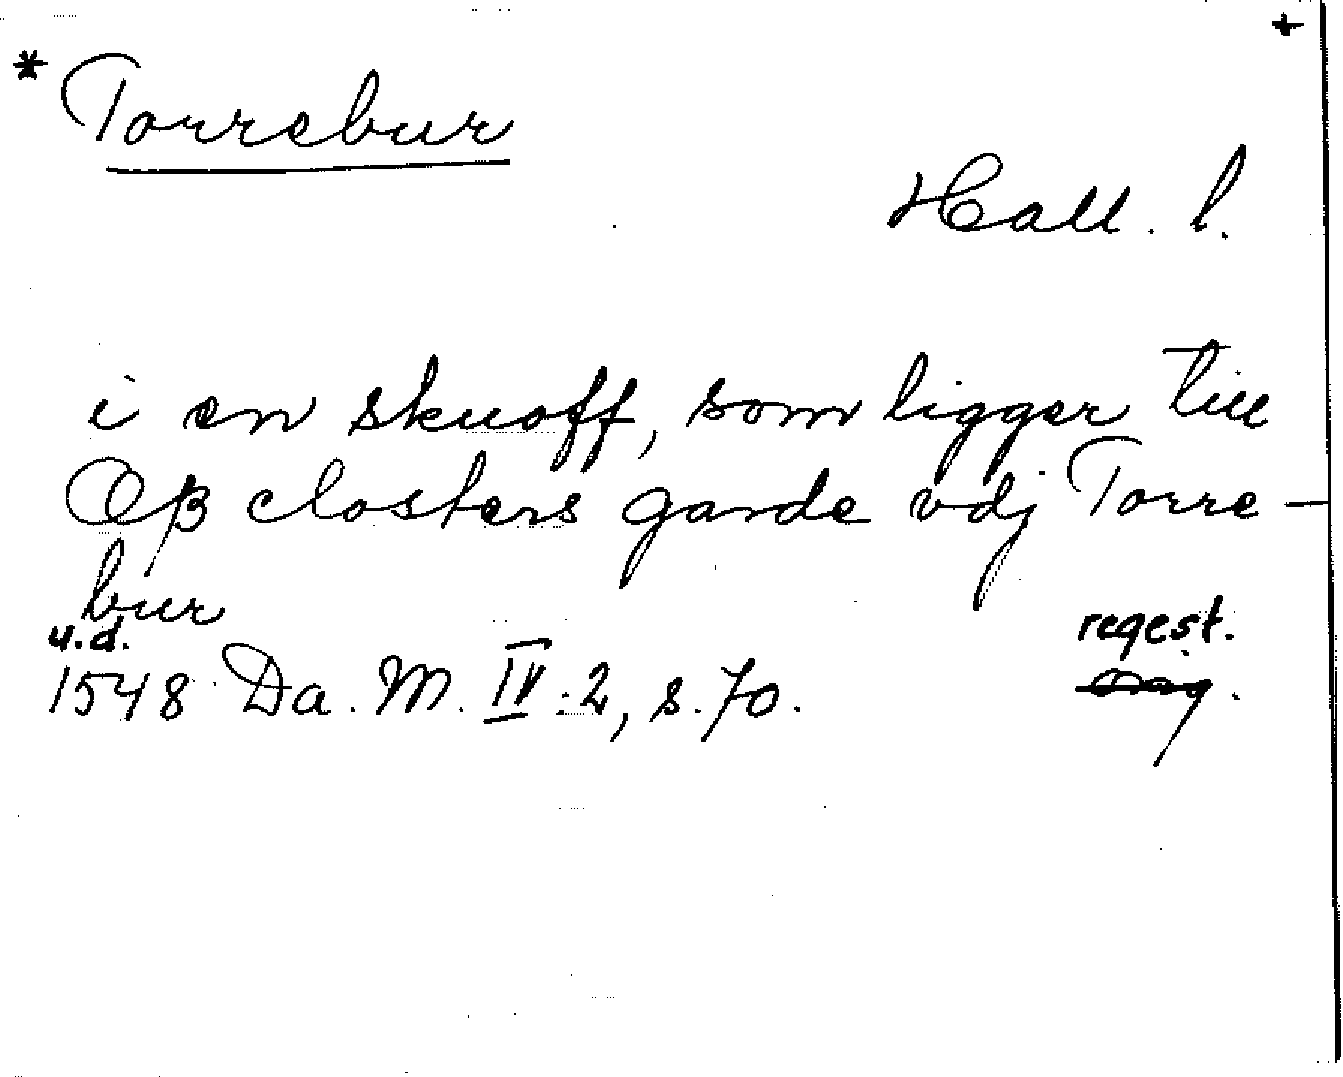 * Torrebur +
Hall. l.
i en skuoff, som ligger till
Oß closters garde vdj Torre-
bur
u.d. regest.
1548 Da. M. IV:2, s. 70.